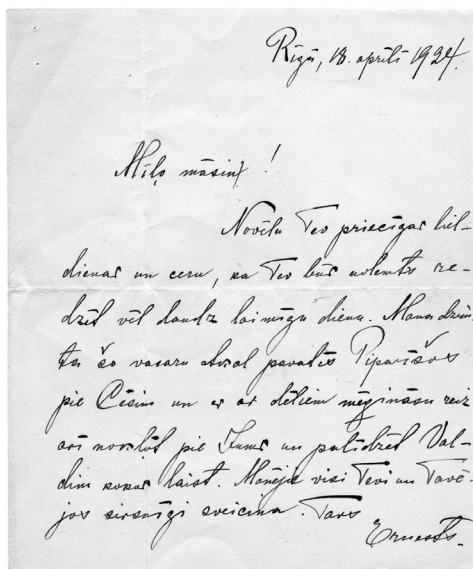 Rīgā, 18. aprīlī 1924.
Mīļo māsiņ!
Novēlu Tev priecīgas liel-
dienas un ceru, ka Tev būs nolemts re-
dzēt vēl daudz laimīgu dienu. Mana dzim-
ta šo vasaru atkal pavadīs Piparīšos
pie Cēsīm un es ar dēliem mēģināšu reiz
arī novilkt pie Jums un palīdzēt Val-
dim kokas laist. Manējie visi Tevi un Tavē-
jos sirsnīgi sveicina. Tavs
Ernests.